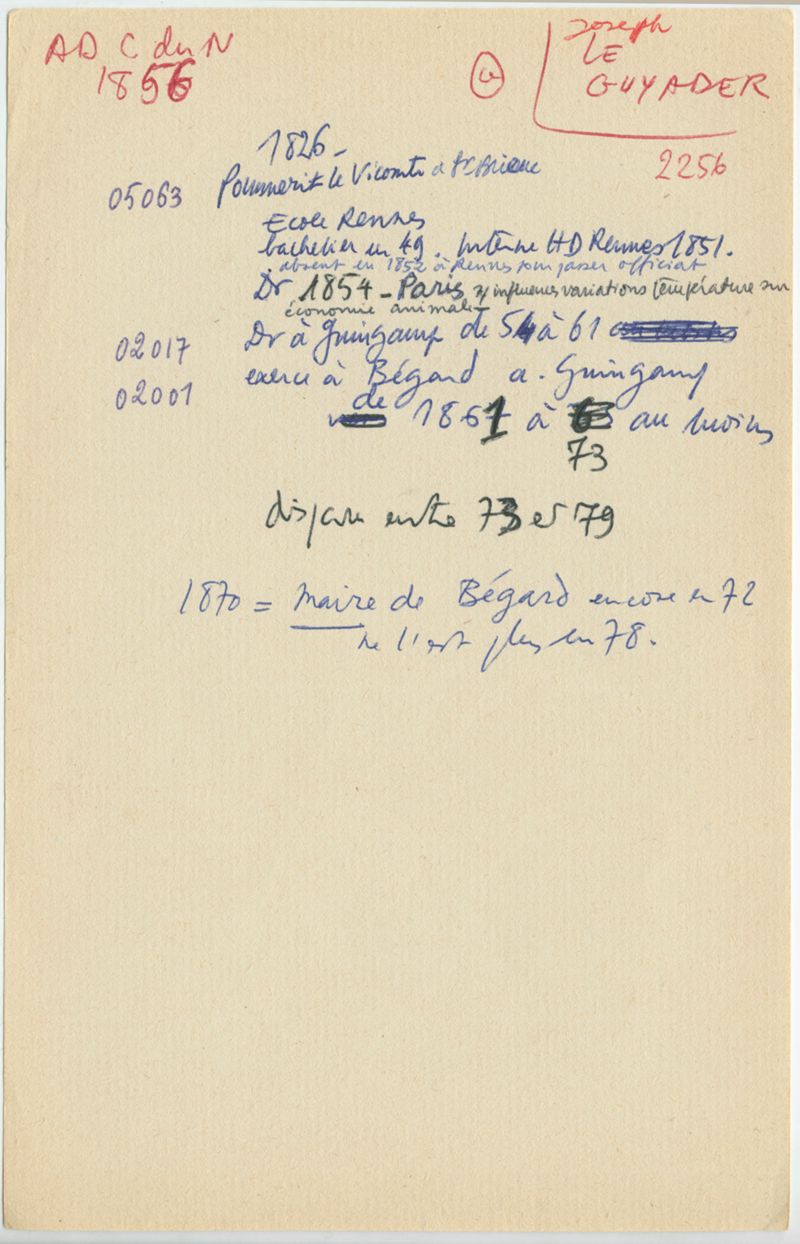 AD C du N
1856
Joseph
LE
GUYADER
2256
1826 -
05063 Pommerit le Vicomte a St Brieuc
Ecole Rennes
bachelier en 49. Interne HD Rennes 1851.
absent en 1852 à Rennes pour passer officiat
Dr 1854 - Paris influences variations température sur
économie animale
02017 Dr à Guingamp de 54 à 61
02001 exerce à Bégard a. Guingamp
de 1861 à au moins
73
disparu entre 73 et 79
1870 = Maire de Bégard encore en 72
ne l'est plus en 78.